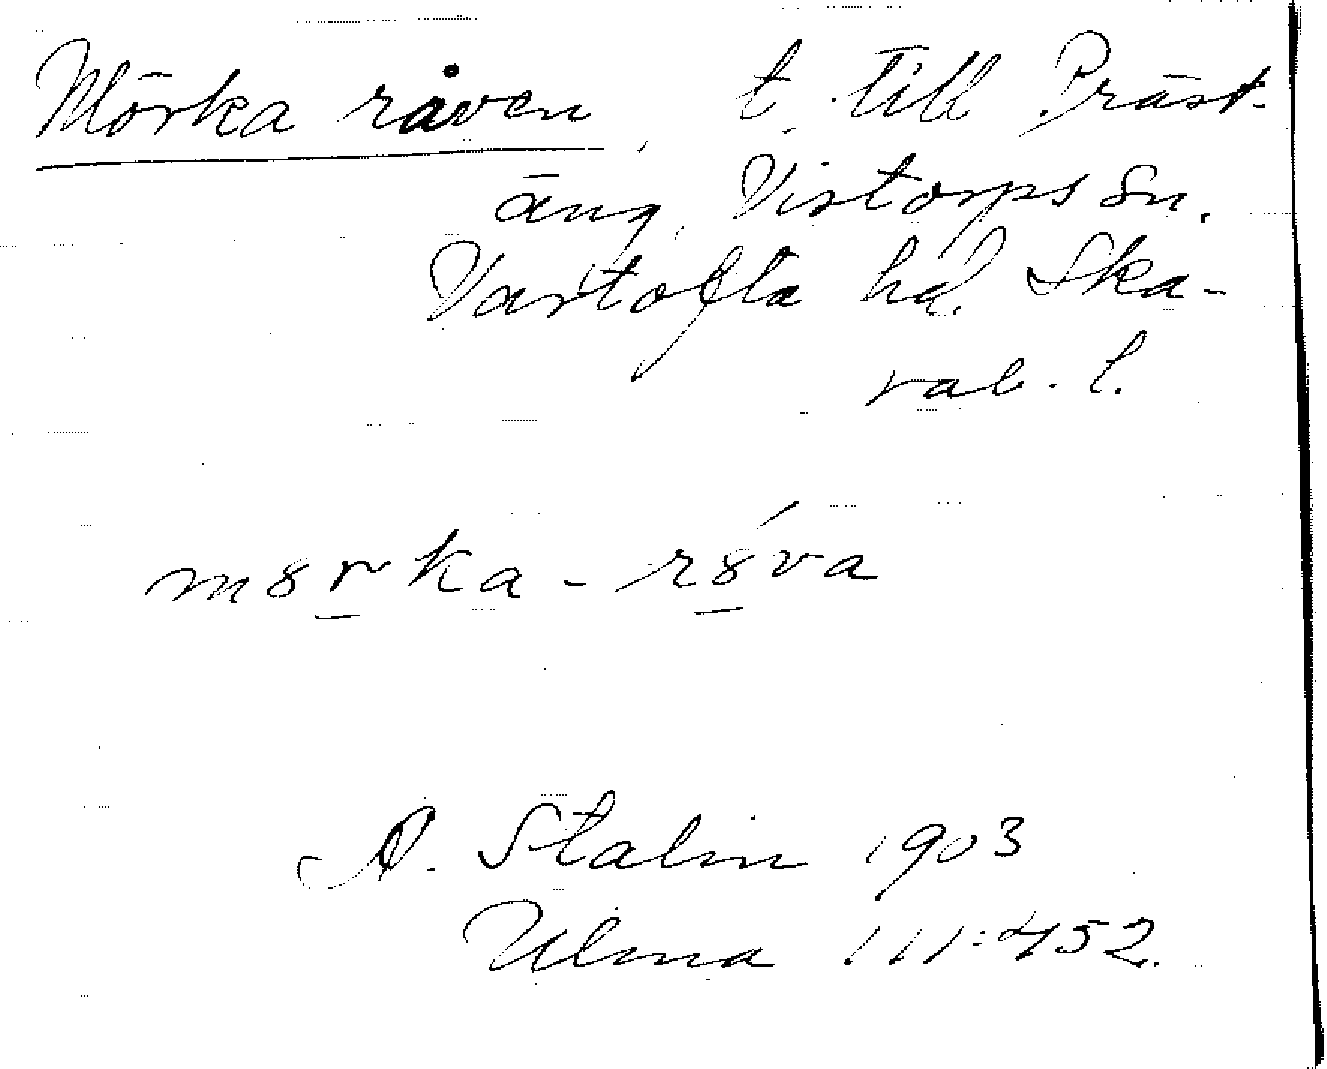 Mörka råven, t. till Präst-
äng, Vistorps sn.
Vartofta hd. Ska-
rab. l.
m8rka - r8́va
A. Stalin 1903
Ulma 111:452.